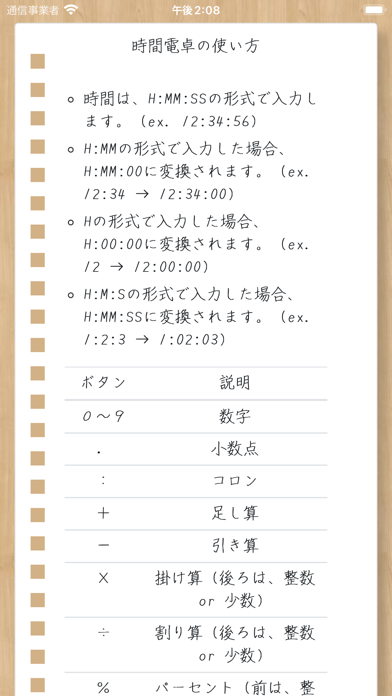 通信事業者 午後2:08
時間電卓の使い方
時間は、H:MM:SSの形式で入力し
ます。（ex. 12:34:56）
H:MMの形式で入力した場合、
H:MM:00に変換されます。（ex.
12:34 → 12:34:00）
Hの形式で入力した場合、
H:00:00に変換されます。（ex.
12 → 12:00:00）
H:M:Sの形式で入力した場合、
H:MM:SSに変換されます。（ex.
1:2:3 → 1:02:03）
ボタン 説明
0～9 数字
. 小数点
: コロン
＋ 足し算
－ 引き算
× 掛け算（後ろは、整数
or 少数）
÷ 割り算（後ろは、整数
or 少数）
% パーセント（前は、整